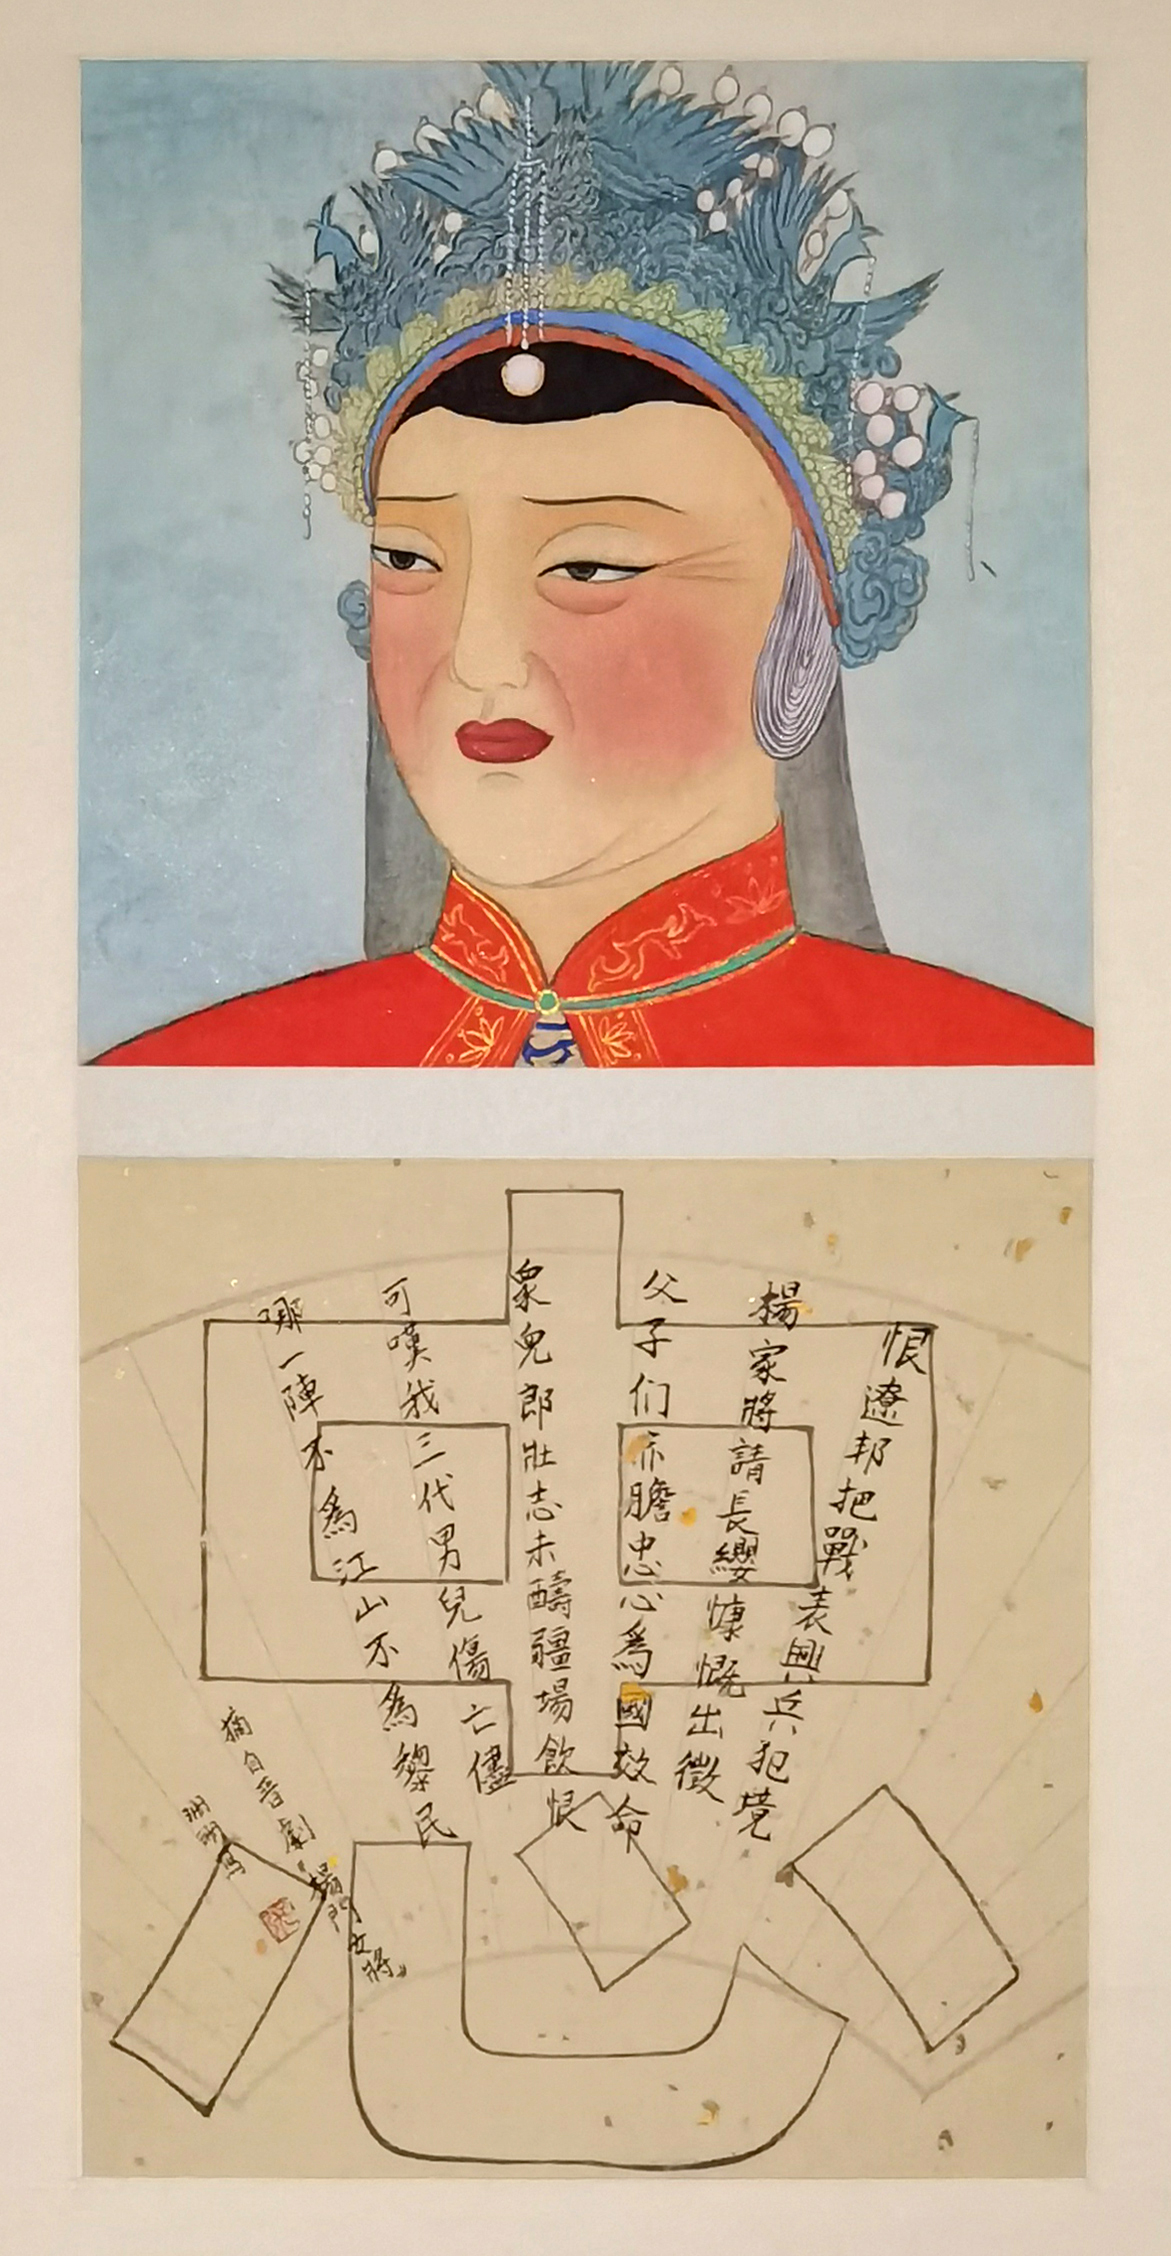 忠
恨遼邦把戰表興兵犯境
楊家將請長纓慷慨出徵
父子们赤膽忠心爲國效命
衆兒郎壯志未醻疆場飲恨
可嘆我三代男兒傷亡儘
哪一陣不爲江山不為黎民
摘自晉劇《楊門女將》